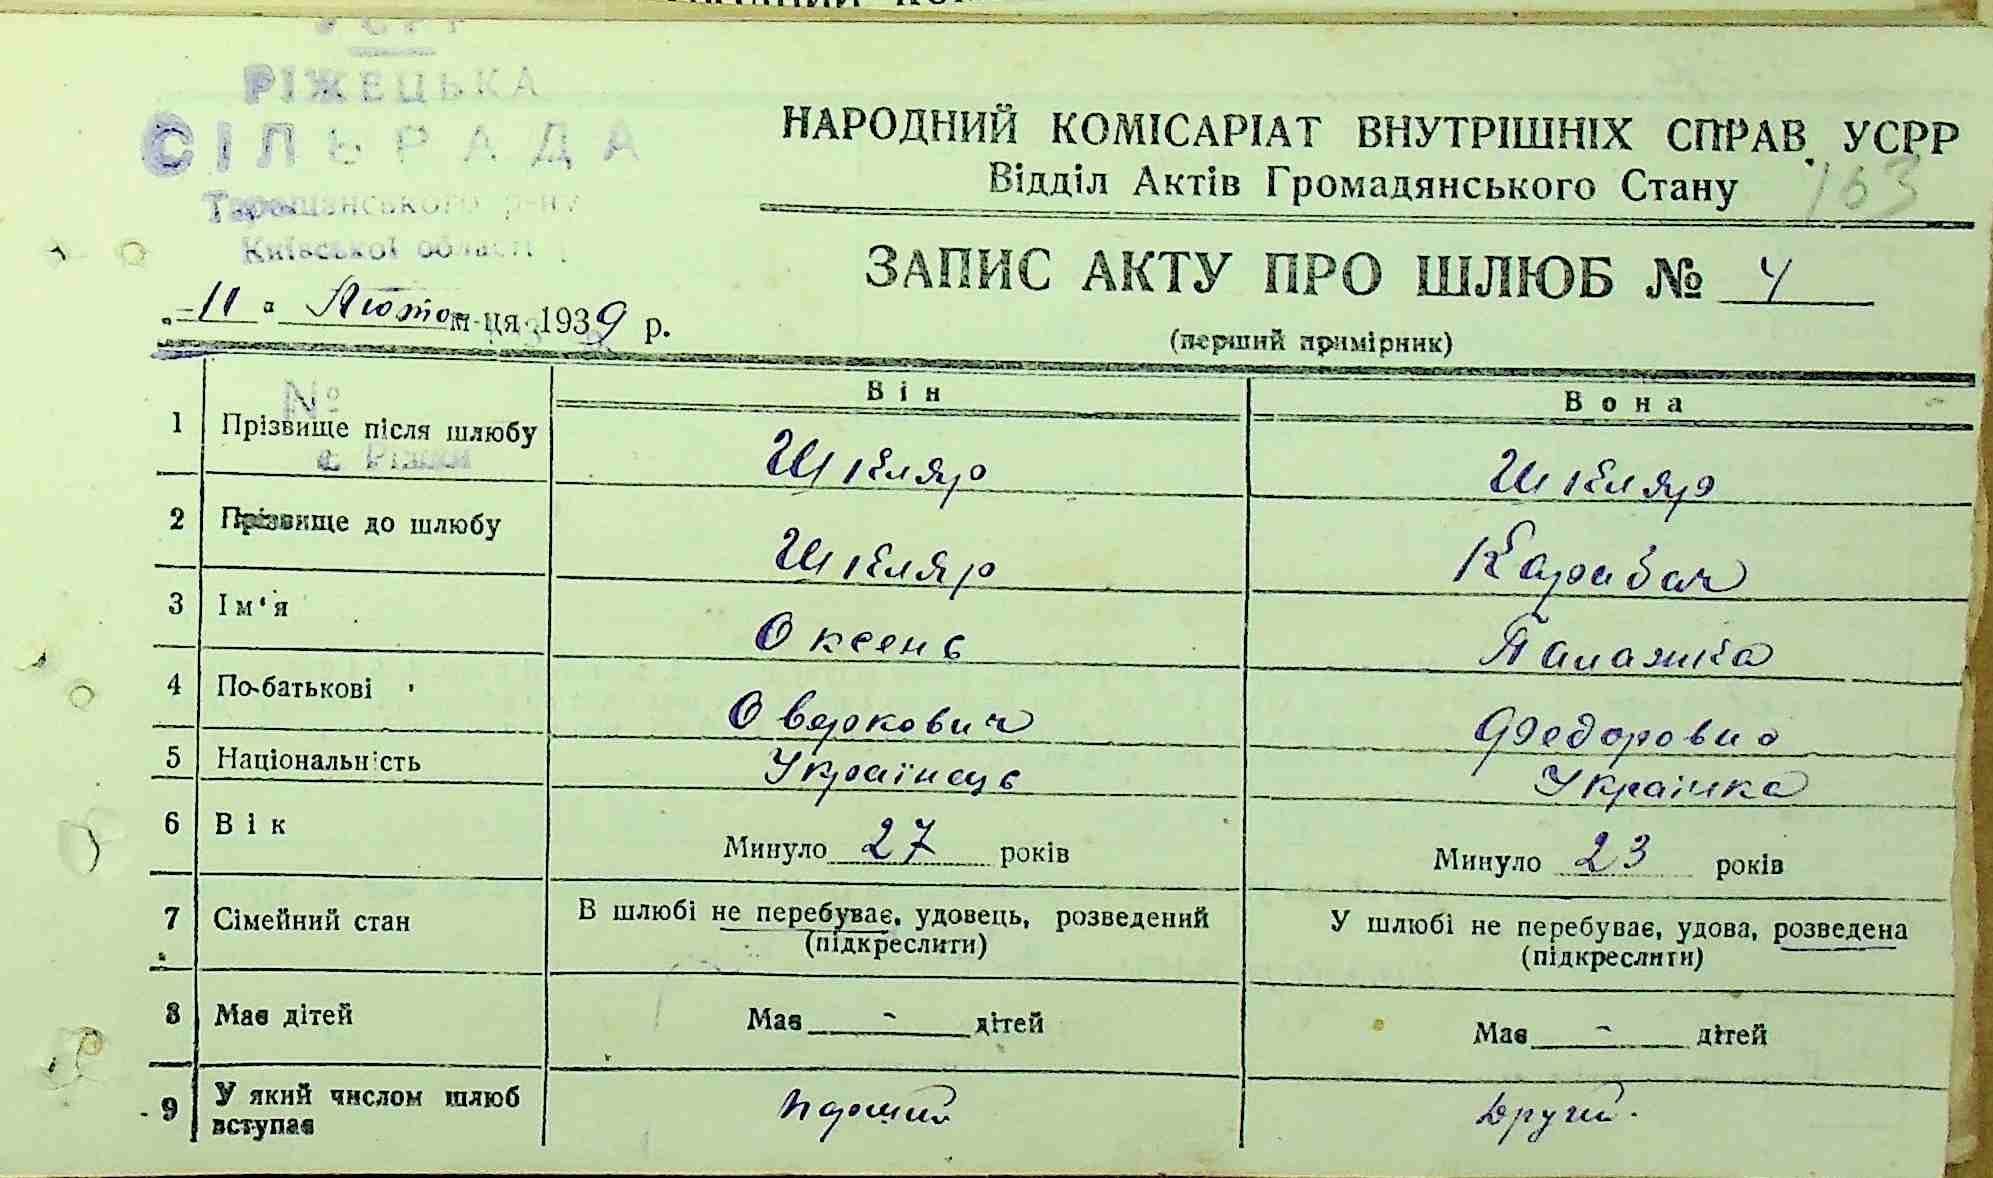 УСРР
РІЖЕЦЬКА
СІЛЬРАДА
Таращанського р-ну
Київської області
НАРОДНИЙ КОМІСАРІАТ ВНУТРІШНІХ СПРАВ УСРР
Відділ Актів Громадянського Стану
163
ЗАПИС АКТУ ПРО ШЛЮБ № 4
(перший примірник)
„11" Лютого м-ця 1939 р.
№
с. Ріжки
Він Вона
1 Прізвище після шлюбу Шкляр Шкляр
2 Прізвище до шлюбу Шкляр Карабач
3 Ім'я Оксень Палажка
4 По-батькові Оверкович Федоровна
5 Національність Українець Українка
6 Вік Минуло 27 років Минуло 23 років
7 Сімейний стан В шлюбі не перебуває, удовець, розведений У шлюбі не перебуває, удова, розведена
(підкреслити) (підкреслити)
8 Має дітей Має - дітей Має - дітей
9 У який числом шлюб вступає перший другий.